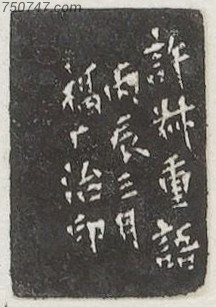 750747.com
許叔重語
丙辰三月
福厂治印